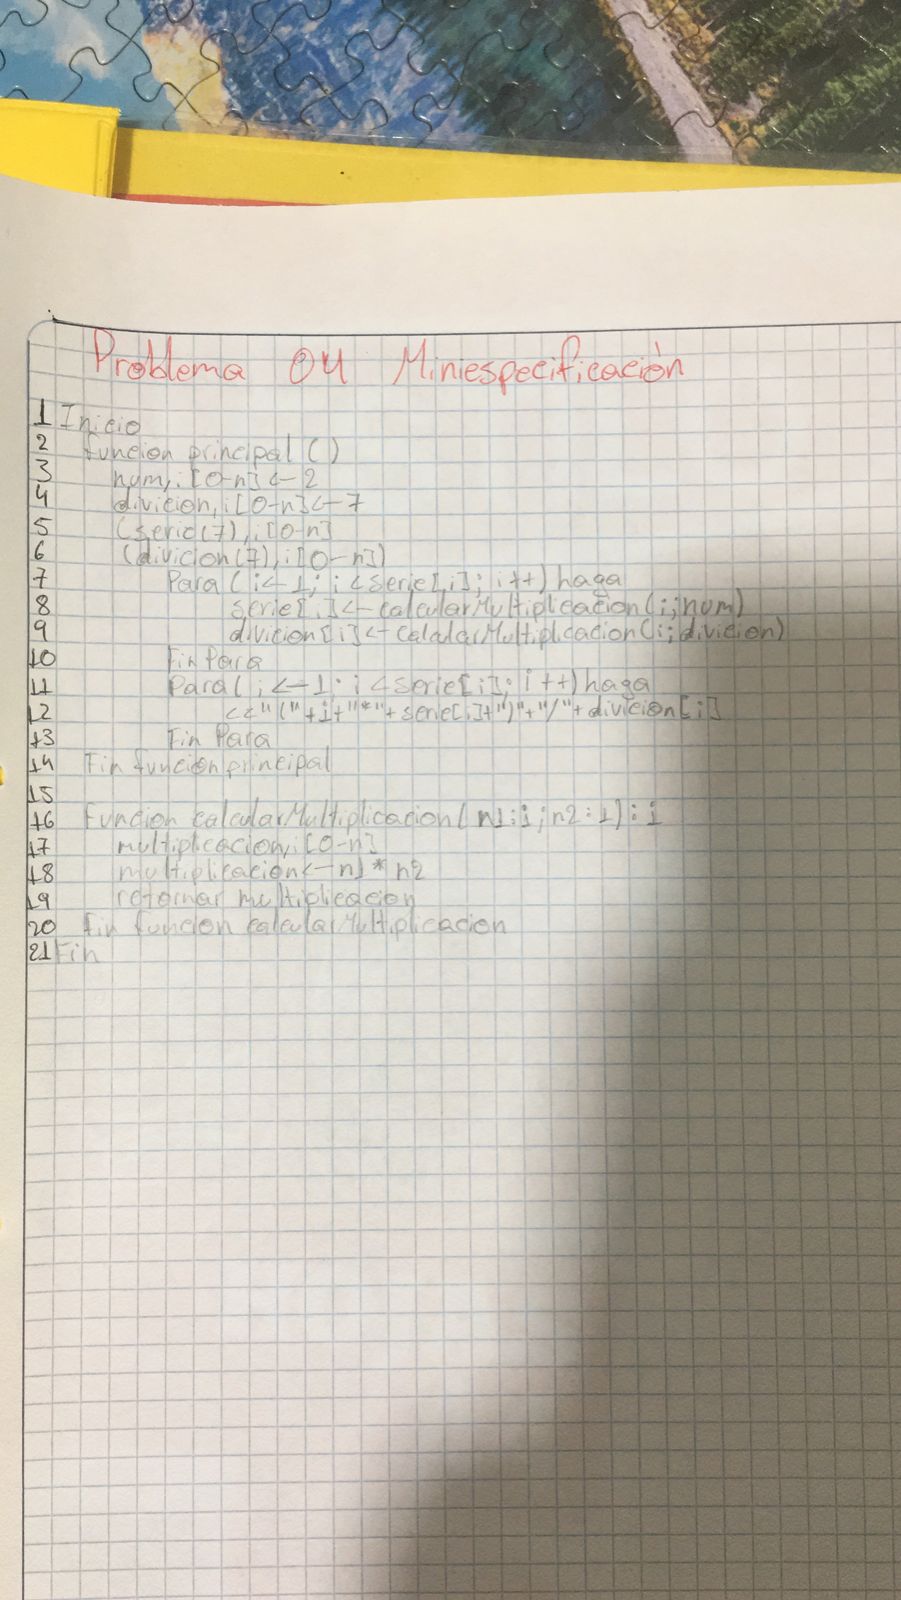 Problema 04 Miniespecificación
1 Inicio
2 funcion principal ()
3 num,i[0-n]<-2
4 divicion,i[0-n]<-7
5 (serie(7),i[0-n]
6 (divicion(7),i[0-n])
7 Para(i<-1; i<serie[i]; i++)haga
8 serie[i]<-calcularMultiplicacion(i;num)
9 divicion[i]<-calcularMultiplicacion(i;divicion)
10 Fin Para
11 Para(i<-1; i<serie[i]; i++)haga
12 <<"("+i+"*"+serie[i]+")"+"/"+divicion[i]
13 Fin Para
14 Fin funcion principal
15
16 Funcion calcularMultiplicacion(n1:i;n2:1):i
17 multiplicacion,i[0-n]
18 multiplicacion<-n1*n2
19 retornar multiplicacion
20 Fin funcion calcularMultiplicacion
21 Fin